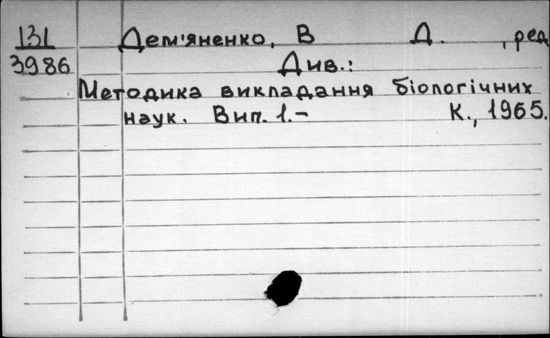 131 Дем'яненко, В Д. , ред
3986 Див.:
Методика викладання біологічних
наук. Вип. 1.- К., 1965.